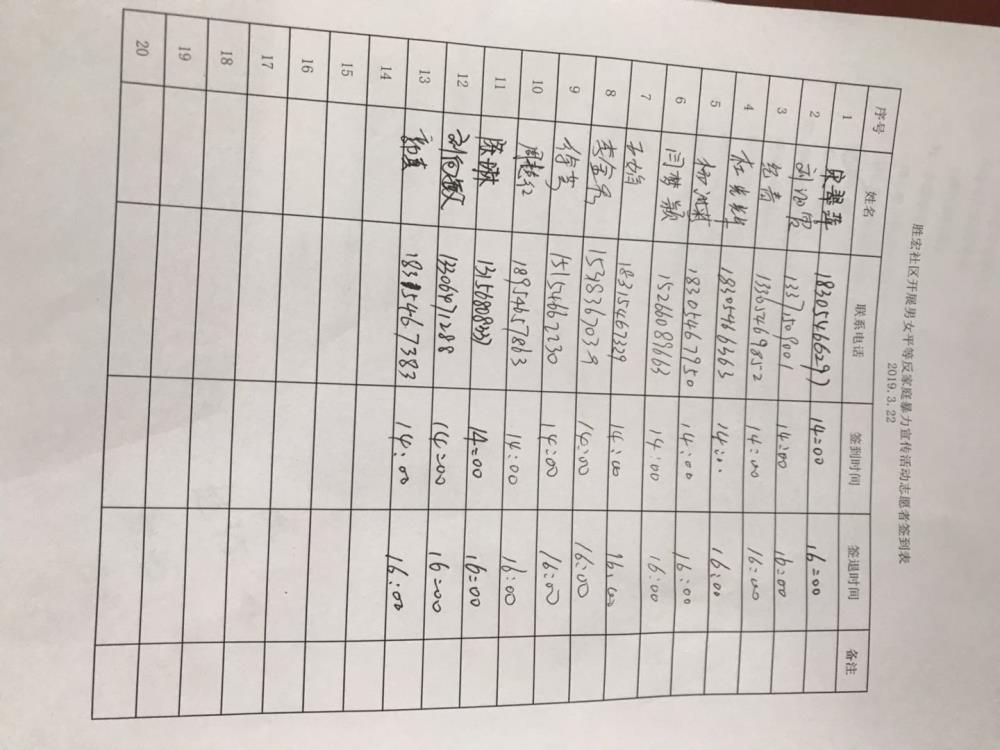 胜宏社区开展男女平等反家庭暴力宣传活动志愿者签到表
2019.3.22
序号 姓名 联系电话 签到时间 签退时间 备注
1 宋翠萍 18305466297 14:00 16:00
2 14:00 16:00
3 纪青 13365469852 14:00 16:00
4 杜光辉 18305466363 14:00 16:00
5 18305467950 14:00 16:00
6 闫梦颖 15266089663 14:00 16:00
7 18315467329 14:00 16:00
8 李金秀 14:00 16:00
9 徐芳 15154662230 14:00 16:00
10 18954657863 14:00 16:00
11 陈琳 14:00 16:00
12 刘向敏 13306471288 14:00 16:00
13 郭真 18315467383 14:00 16:00
14
15
16
17
18
19
20